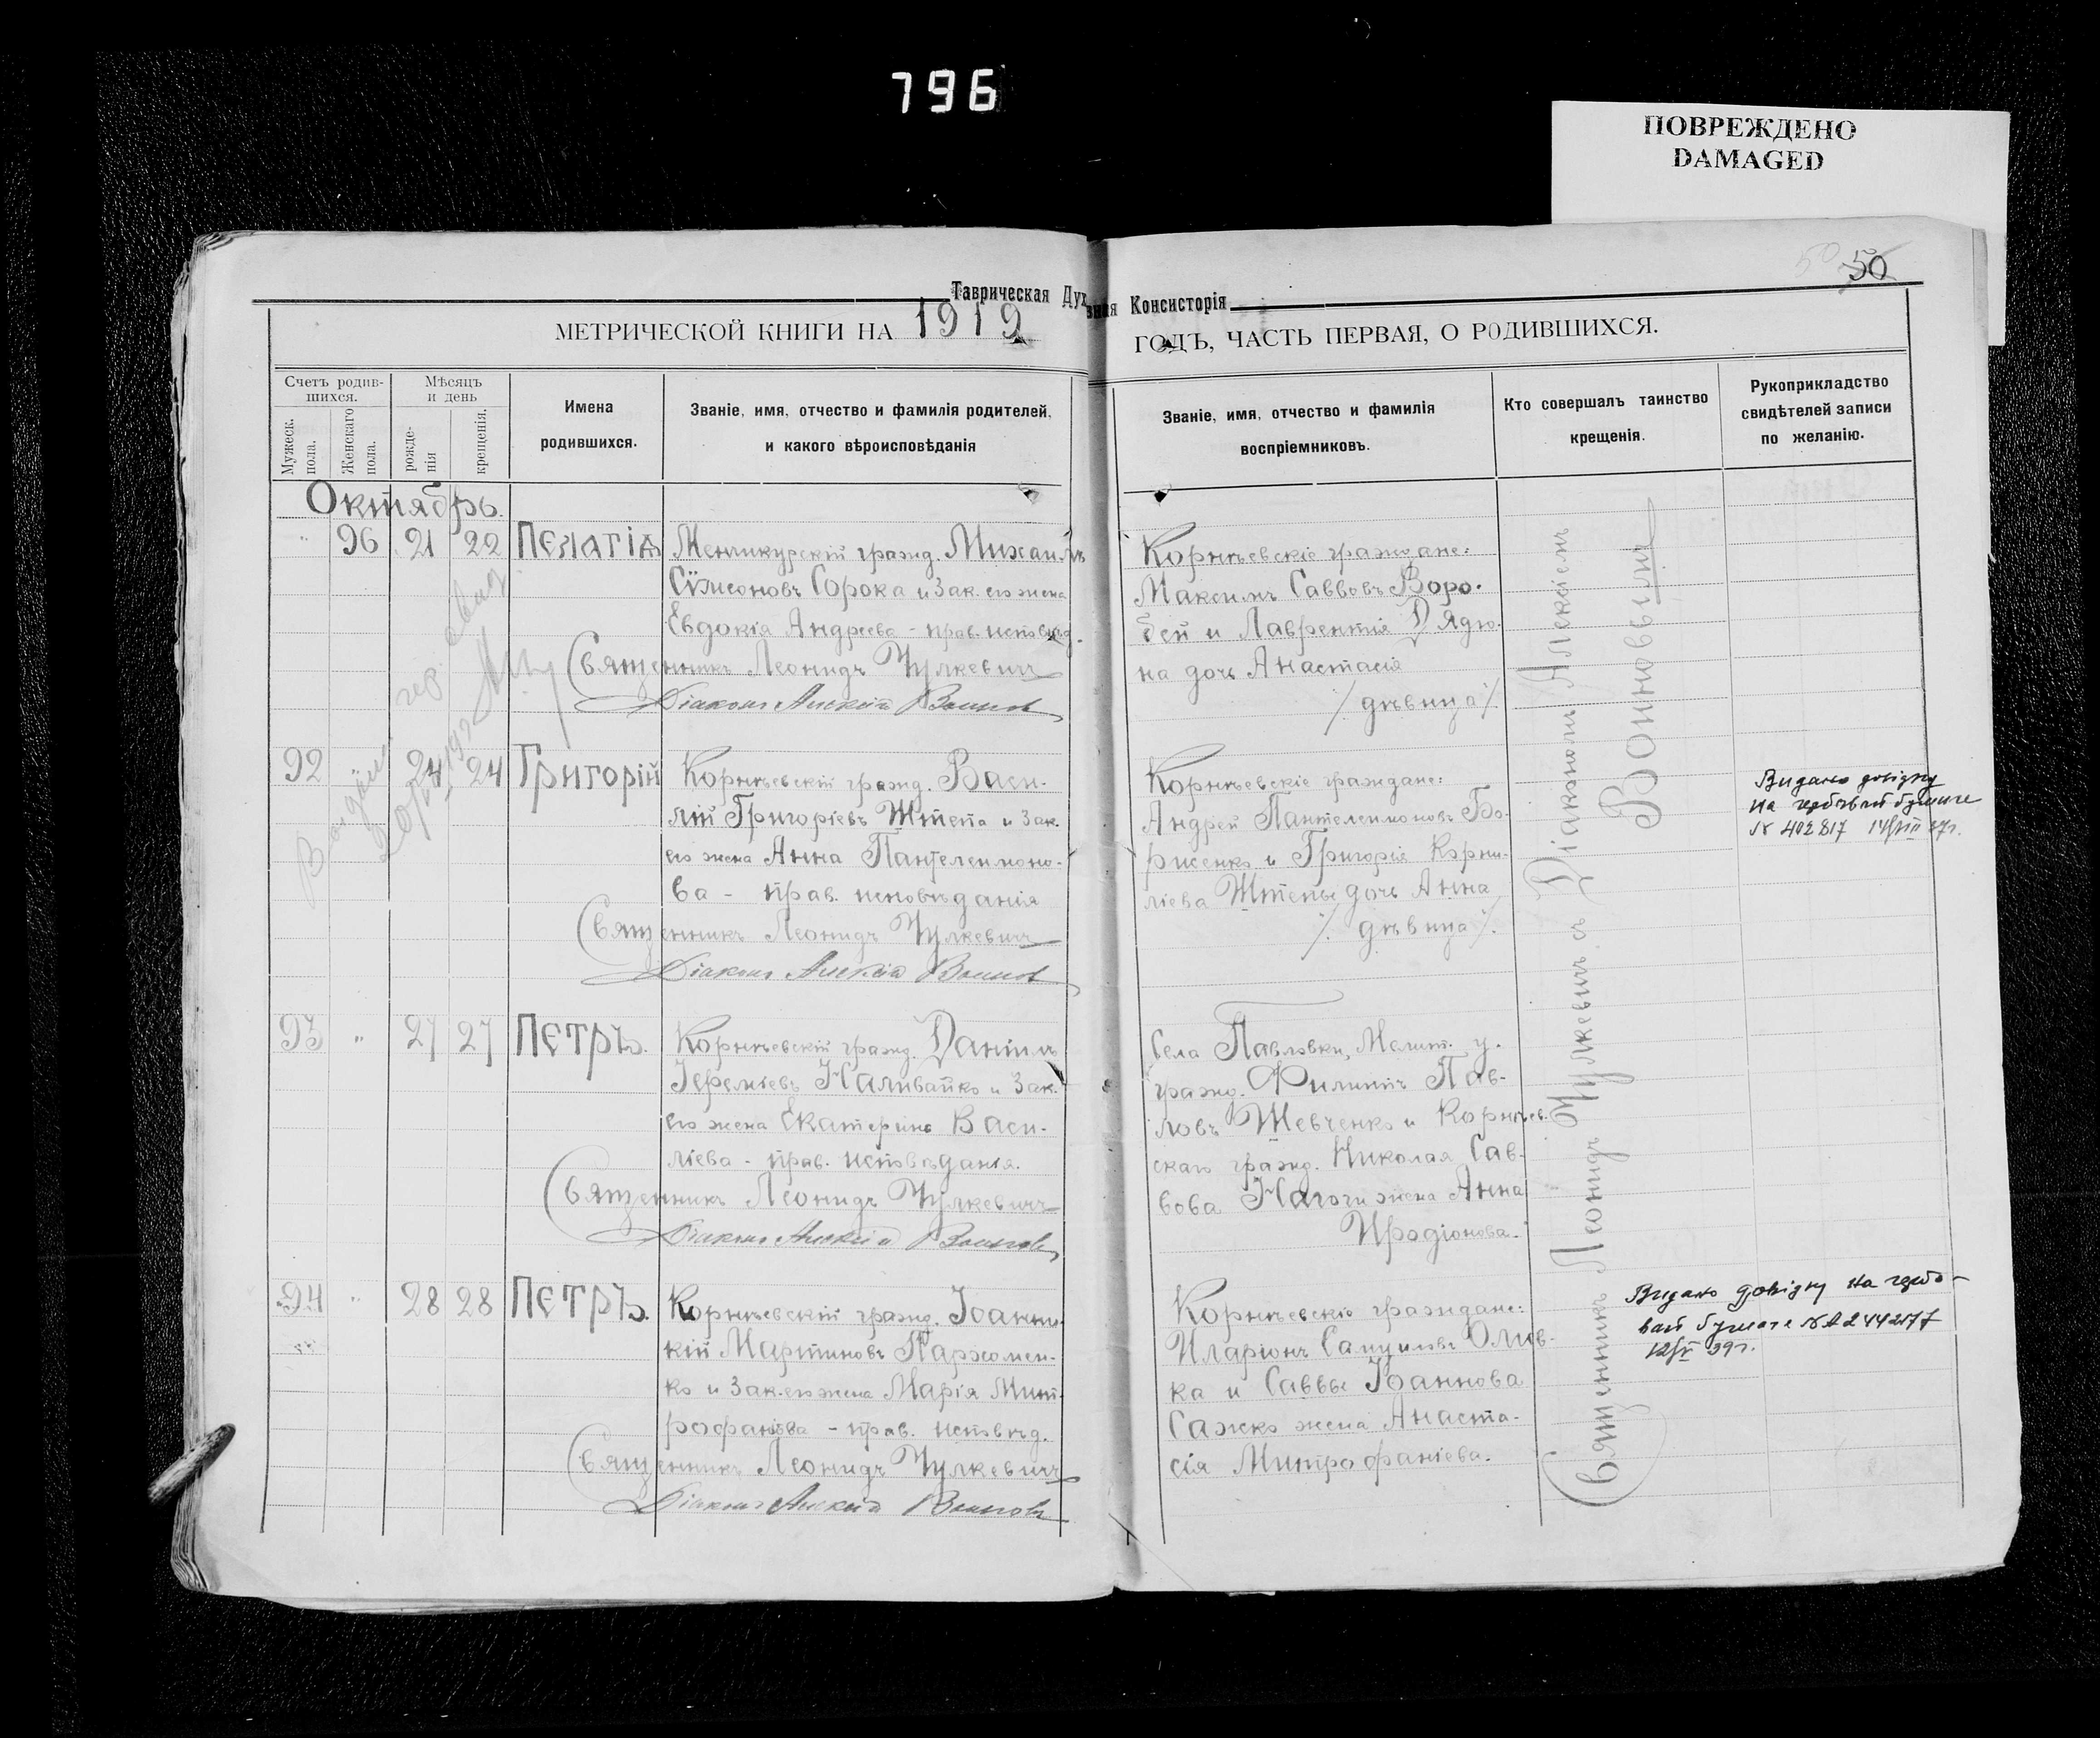 796
ПОВРЕЖДЕНО
DAMAGED
50
Таврическая Духовная Консисторія
МЕТРИЧЕСКОЙ КНИГИ НА 1919 ГОДЪ, ЧАСТЬ ПЕРВАЯ, О РОДИВШИХСЯ.
Счетъ родив-
шихся.
Мужеск.
пола.
Женскаго
пола.
Мѣсяцъ
и день
рожде-
нія
крещенія.
Имена
родившихся.
Званіе, имя, отчество и фамилія родителей,
и какого вѣроисповѣданія
Званіе, имя, отчество и фамилія
воспріемниковъ.
Кто совершалъ таинство
крещенія.
Рукоприкладство
свидѣтелей записи
по желанію.
Октябрь.
" 96 21 22 Пелагія
Менчикурскій гражд. Михаилъ
Сѵмеоновъ Сорока и зак. его жена
Евдокія Андреева - прав. исповѣд.
Священникъ Леонидъ Чулкевичъ
Діаконъ Алексій Воиновъ
Корнѣевскіе граждане:
Максимъ Саввовъ Воро-
бей и Лаврентія Дядю-
на дочь Анастасія
/. дѣвица ./
92 24 24 Григорій
Корнѣевскій гражд. Васи-
лій Григоріевъ Штепа и зак.
его жена Анна Пантелеимоно-
ва - прав. исповѣданія
Священникъ Леонидъ Чулкевичъ
Діаконъ Алексій Воиновъ
Корнѣевскіе граждане:
Андрей Пантелеимоновъ Бо-
рисенко и Григорія Корни-
ліева Штепы дочь Анна
/. дѣвица ./
Видано довідку
на гербовій бумаге
№ 402817 14/VIII 37г.
93 " 27 27 Петръ.
Корнѣевскій гражд. Даніилъ
Іереміевъ Наливайко и зак.
его жена Екатерина Васи-
ліева - прав. исповѣданія.
Священникъ Леонидъ Чулкевичъ
Діаконъ Алексій Воиновъ
Села Павловки, Мелит. у.
гражд. Филиппъ Пав-
ловъ Шевченко и Корнѣев-
скаго гражд. Николая Сав-
вова Нагоги жена Анна
Иродіонова.
94 " 28 28 Петръ.
Корнѣевскій гражд. Іоанни-
кій Мартиновъ Пархомен-
ко и зак. его жена Марія Мит-
рофанова - прав. исповѣд.
Священникъ Леонидъ Чулкевичъ
Діаконъ Алексій Воиновъ
Корнѣевскіе граждане:
Иларіонъ Самуиловъ Олив-
ка и Саввы Іоаннова
Сажко жена Анаста-
сія Митрофаніева.
Видано довідку на гербо-
вай бумаге № А 244257
12/V 39г.
Священникъ Леонидъ Чулкевичъ съ Діакономъ Алексіемъ
Воиновымъ